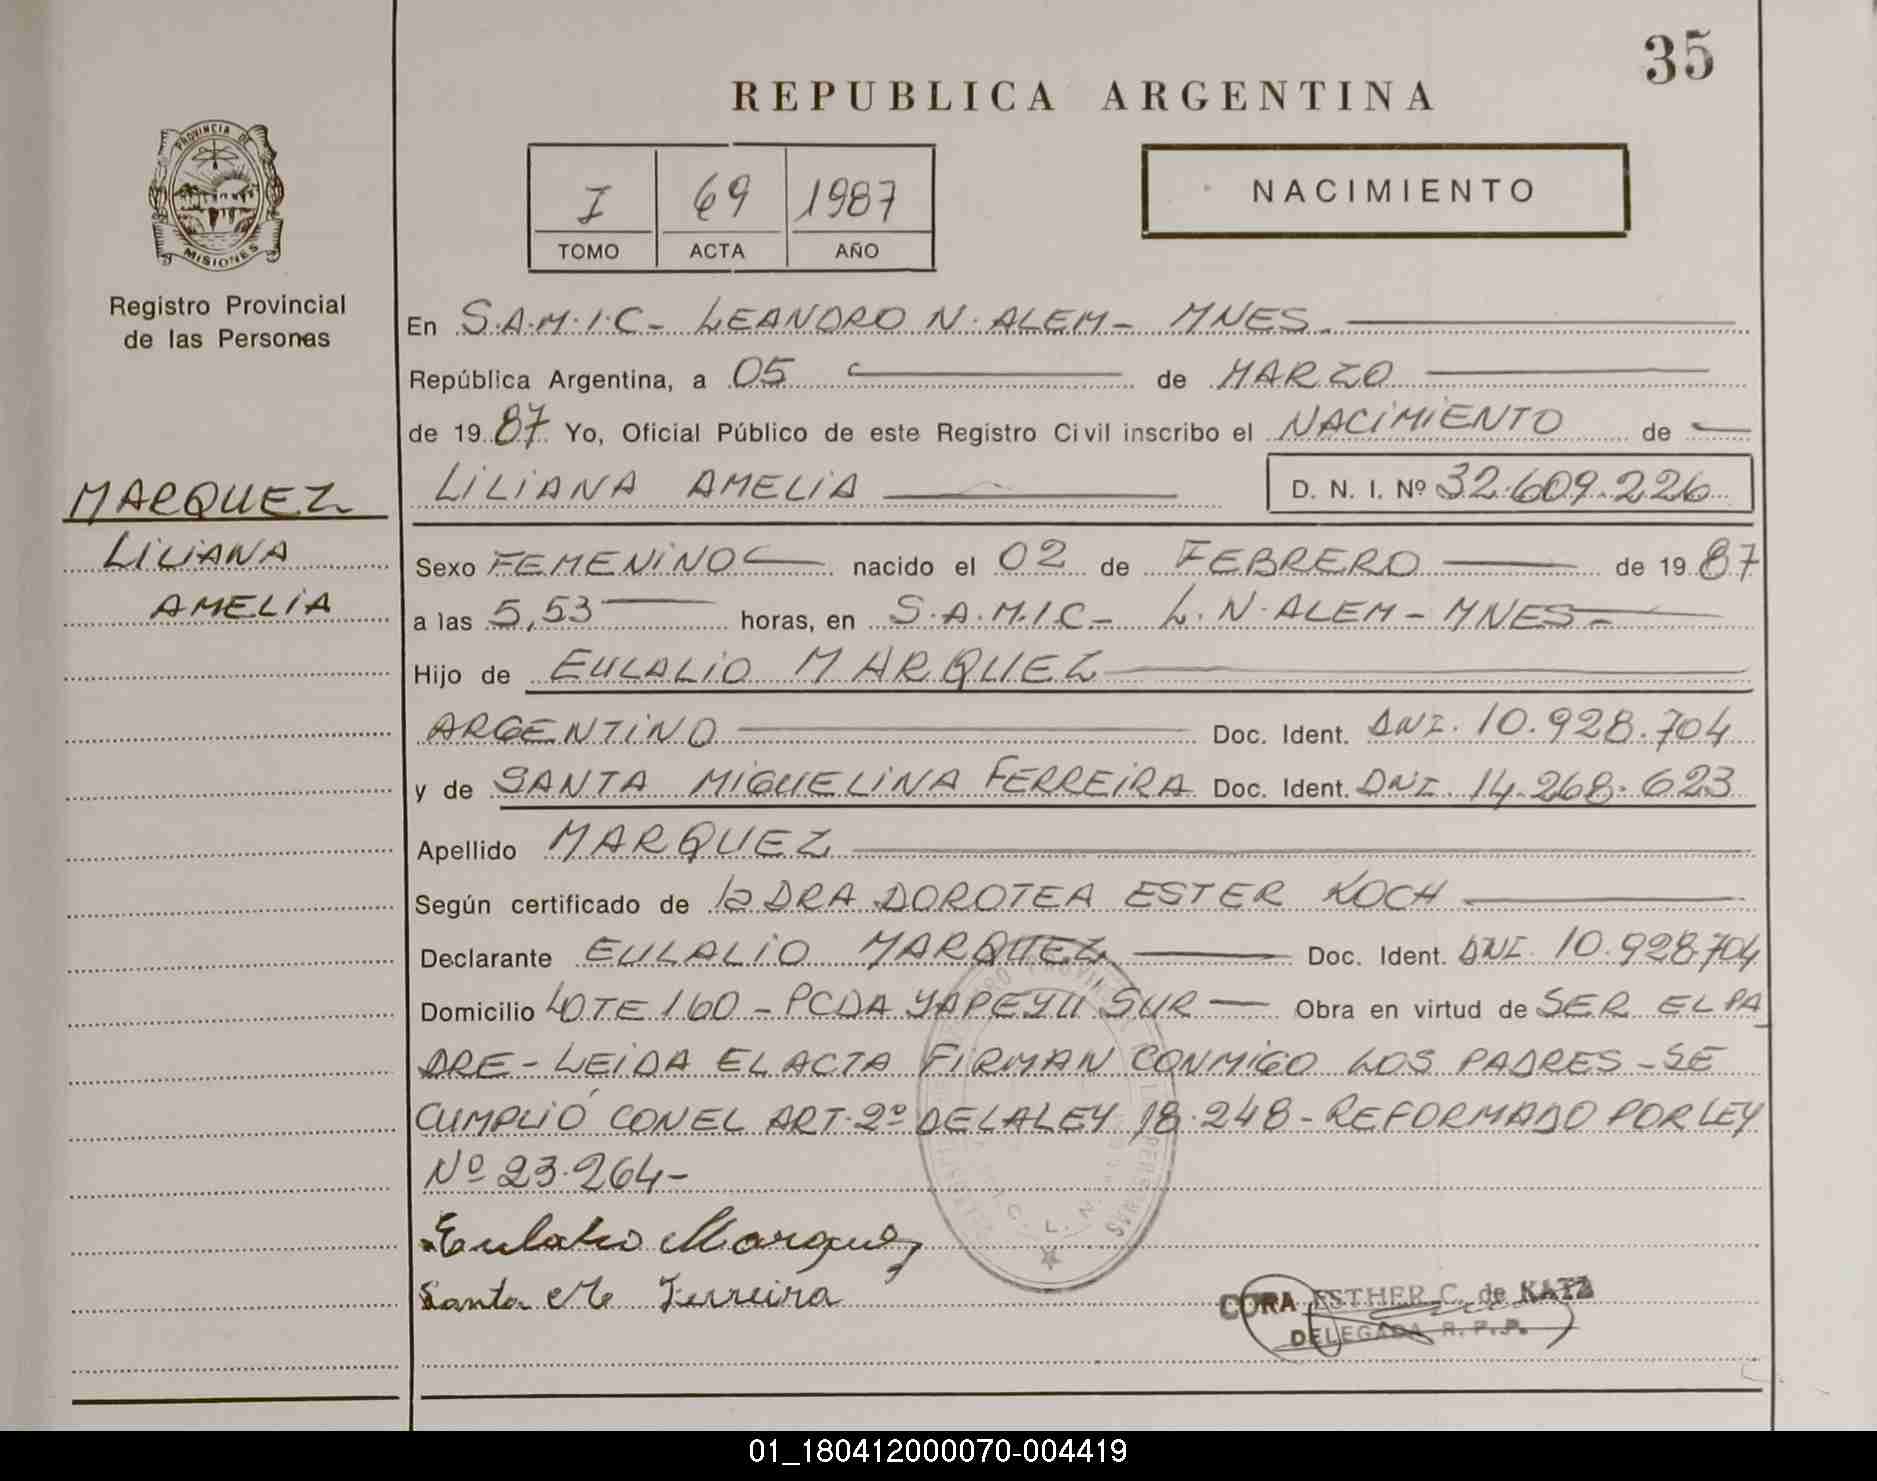 35
REPUBLICA ARGENTINA
PROVINCIA DE
MISIONES
Registro Provincial
de las Personas
I 69 1987
TOMO ACTA AÑO
NACIMIENTO
En S.A.M.I.C- LEANDRO N. ALEM- MNES.
República Argentina, a 05 de MARZO
de 19 87 Yo, Oficial Público de este Registro Civil inscribo el NACIMIENTO de
LILIANA AMELIA D. N. I. Nº 32.609.226
MARQUEZ
LILIANA
AMELIA
Sexo FEMENINO nacido el 02 de FEBRERO de 19 87
a las 5,53 horas, en S.A.M.I.C- L.N.ALEM - MNES-
Hijo de EULALIO MARQUEZ
ARGENTINO Doc. Ident. DNI. 10.928.704
y de SANTA MIGUELINA FERREIRA Doc. Ident. DNI. 14.268.623
Apellido MARQUEZ
Según certificado de la DRA DOROTEA ESTER KOCH
Declarante EULALIO MARQUEZ Doc. Ident. DNI. 10.928.704
Domicilio LOTE 160 - PCDA YAPEYU SUR Obra en virtud de SER EL PA
DRE - LEIDA EL ACTA FIRMAN CONMIGO LOS PADRES - SE
CUMPLIÓ CON EL ART. 2º DE LA LEY 18.248 - REFORMADO POR LEY
Nº 23.264-
Eulalio Marquez
Santa M Ferreira
CORA ESTHER C. de KATZ
DELEGADA R. P. P.
01_180412000070-004419